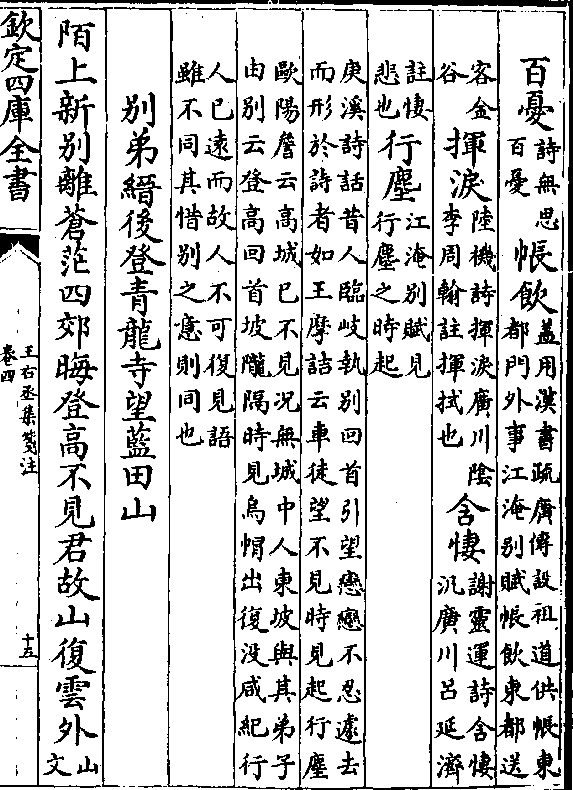 百憂詩無思百憂帳飲蓋用漢書疏廣傳設祖道供帳東都門外事江淹別賦帳飲東都送
客金谷揮淚陸機詩揮淚廣川陰李周翰註揮拭也含悽謝靈運詩含悽汎廣川呂延濟
註悽悲也行塵江淹別賦見行塵之時起
庚溪詩話昔人臨岐執別回首引望戀戀不忍遽去
而形於詩者如王摩詰云車徒望不見時見起行塵
歐陽詹云高城已不見況無城中人東坡與其弟子
由別云登高回首坡隴隔時見烏帽出復沒咸紀行
人已遠而故人不可復見語
雖不同其惜別之意則同也
別弟縉後登青龍寺望藍田山
陌上新別離蒼茫四郊晦登高不見君故山復雲外山文
欽定四庫全書
王右丞集箋注
卷四
十五